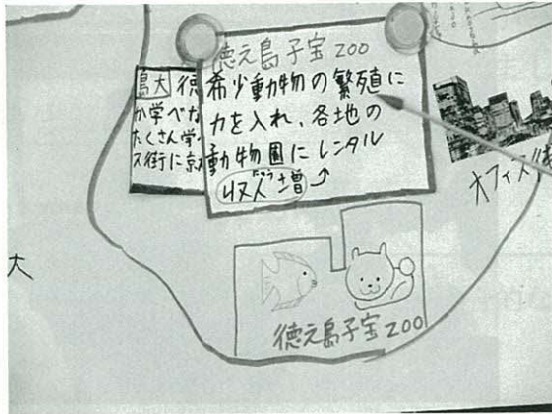 徳之島子宝ZOO
希少動物の繁殖に
力を入れ、各地の
動物園にレンタル
収入増
ぞう
島大 徳
が学べ
たくさん学
ス街に
オフィス
大
徳之島子宝ZOO